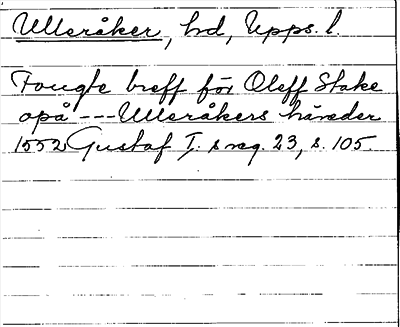 Ulleråker, hd, Upps. l.
Fougte breff för Oleff Stake
opå --- Ulleråkers häreder
1552 Gustaf I. s reg. 23, s. 105.